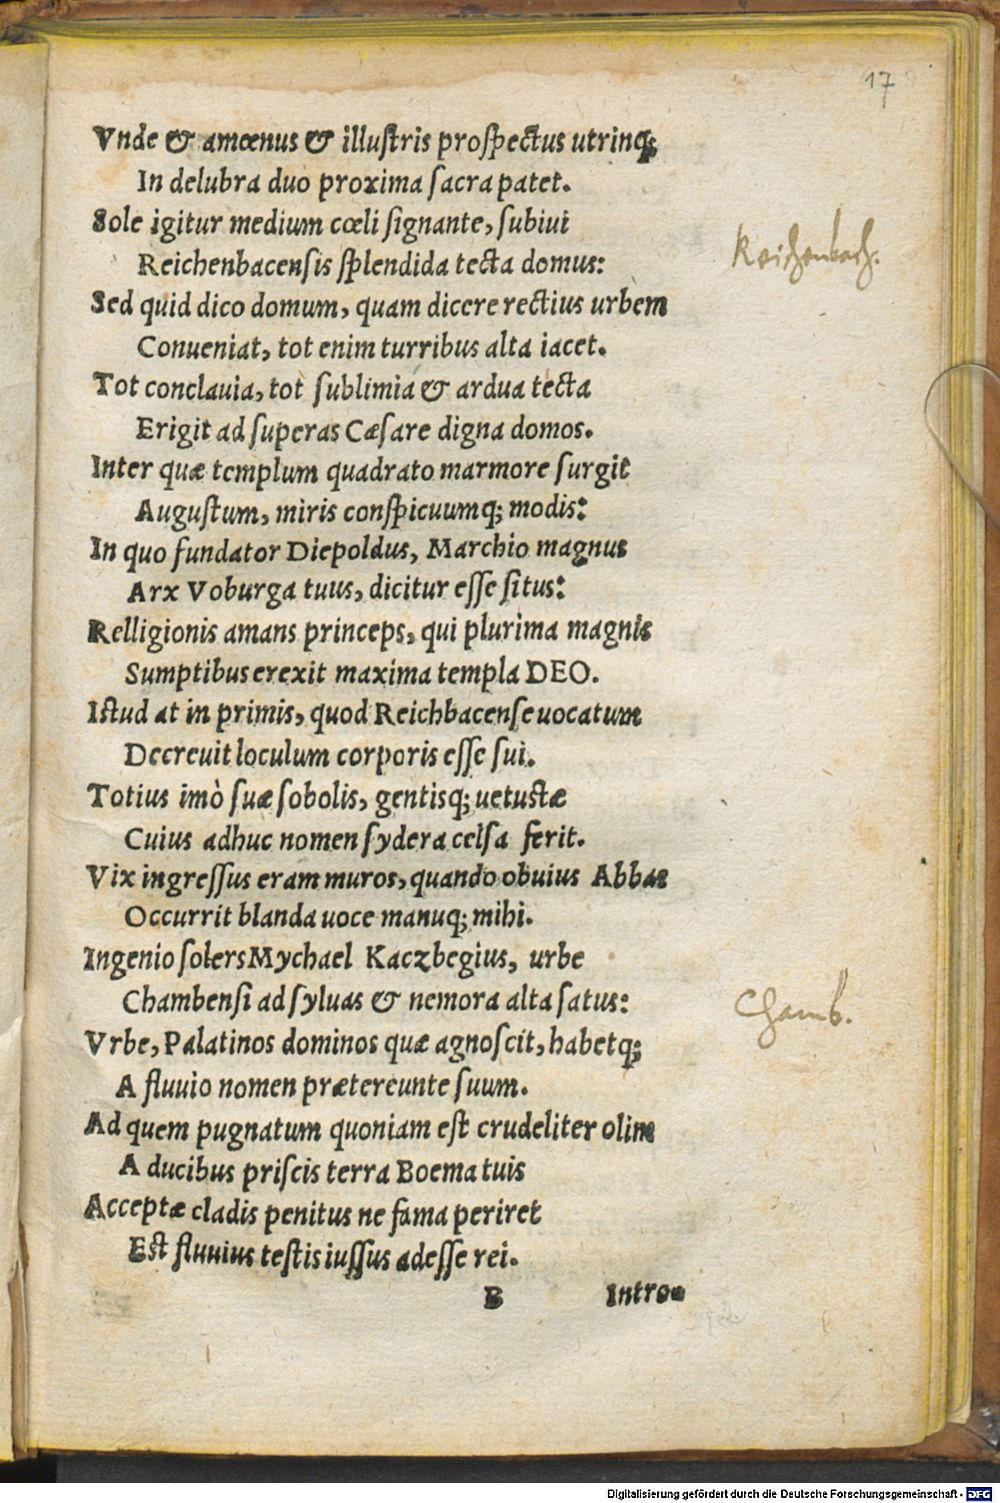 17
Vnde & amœnus & illuſtris proſpectus utrinq;
In delubra duo proxima ſacra patet.
Sole igitur medium cœli ſignante, ſubiui
Reichenbacenſis ſplendida tecta domus:
Reichenbach.
Sed quid dico domum, quam dicere rectius urbem
Conueniat, tot enim turribus alta iacet.
Tot conclauia, tot ſublimia & ardua tecta
Erigit ad ſuperas Cæſare digna domos.
Inter quæ templum quadrato marmore ſurgit
Auguſtum, miris conſpicuumq; modis:
In quo fundator Diepoldus, Marchio magnus
Arx Voburga tuus, dicitur eſſe ſitus:
Relligionis amans princeps, qui plurima magnis
Sumptibus erexit maxima templa DEO.
Iſtud at in primis, quod Reichbacenſe uocatum
Decreuit loculum corporis eſſe ſui.
Totius imò ſuæ ſobolis, gentisq; uetuſtæ
Cuius adhuc nomen ſydera celſa ferit.
Vix ingreſſus eram muros, quando obuius Abbas
Occurrit blanda uoce manuq; mihi.
Ingenio ſolers Mychael Kaczbegius, urbe
Chambenſi ad ſyluas & nemora alta ſatus:
Chamb.
Vrbe, Palatinos dominos quæ agnoſcit, habetq;
A fluuio nomen prætereunte ſuum.
Ad quem pugnatum quoniam eſt crudeliter olim
A ducibus priſcis terra Boema tuis
Acceptæ cladis penitus ne fama periret
Eſt fluuius teſtis iuſſus adeſſe rei.
B Intro-
Digitalisierung gefördert durch die Deutsche Forschungsgemeinschaft - DFG